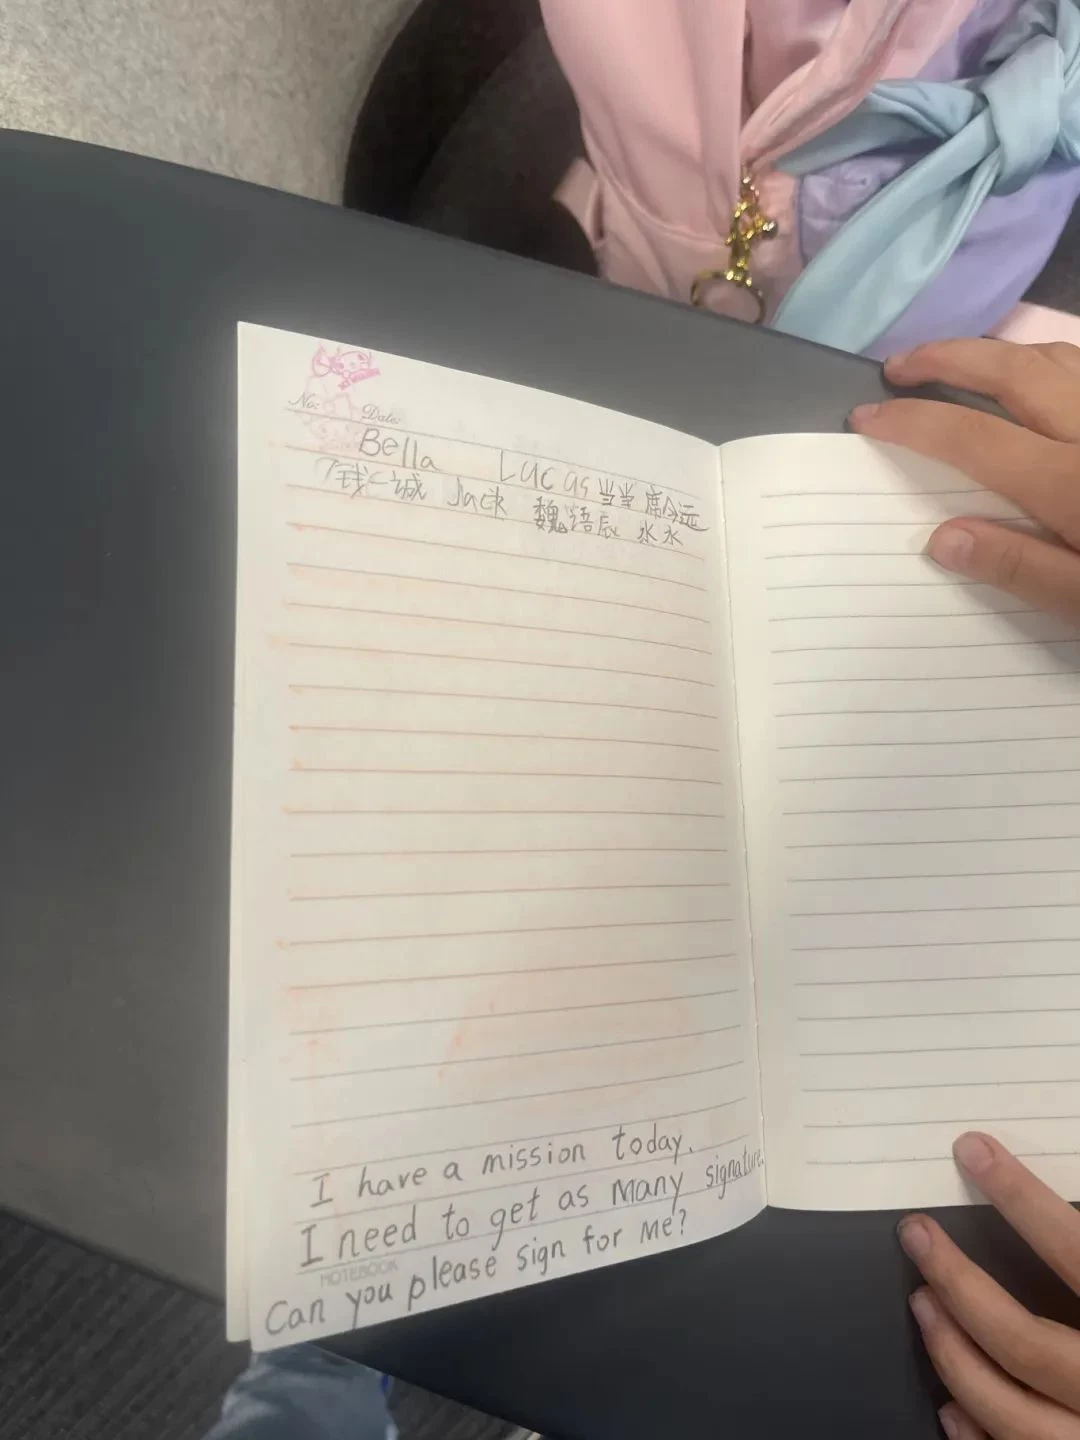 No: Date:
Bella Lucas 当当 席今远
钱一诚 Jack 魏语辰 水水
I have a mission today.
I need to get as many signature.
NOTEBOOK
Can you please sign for me?